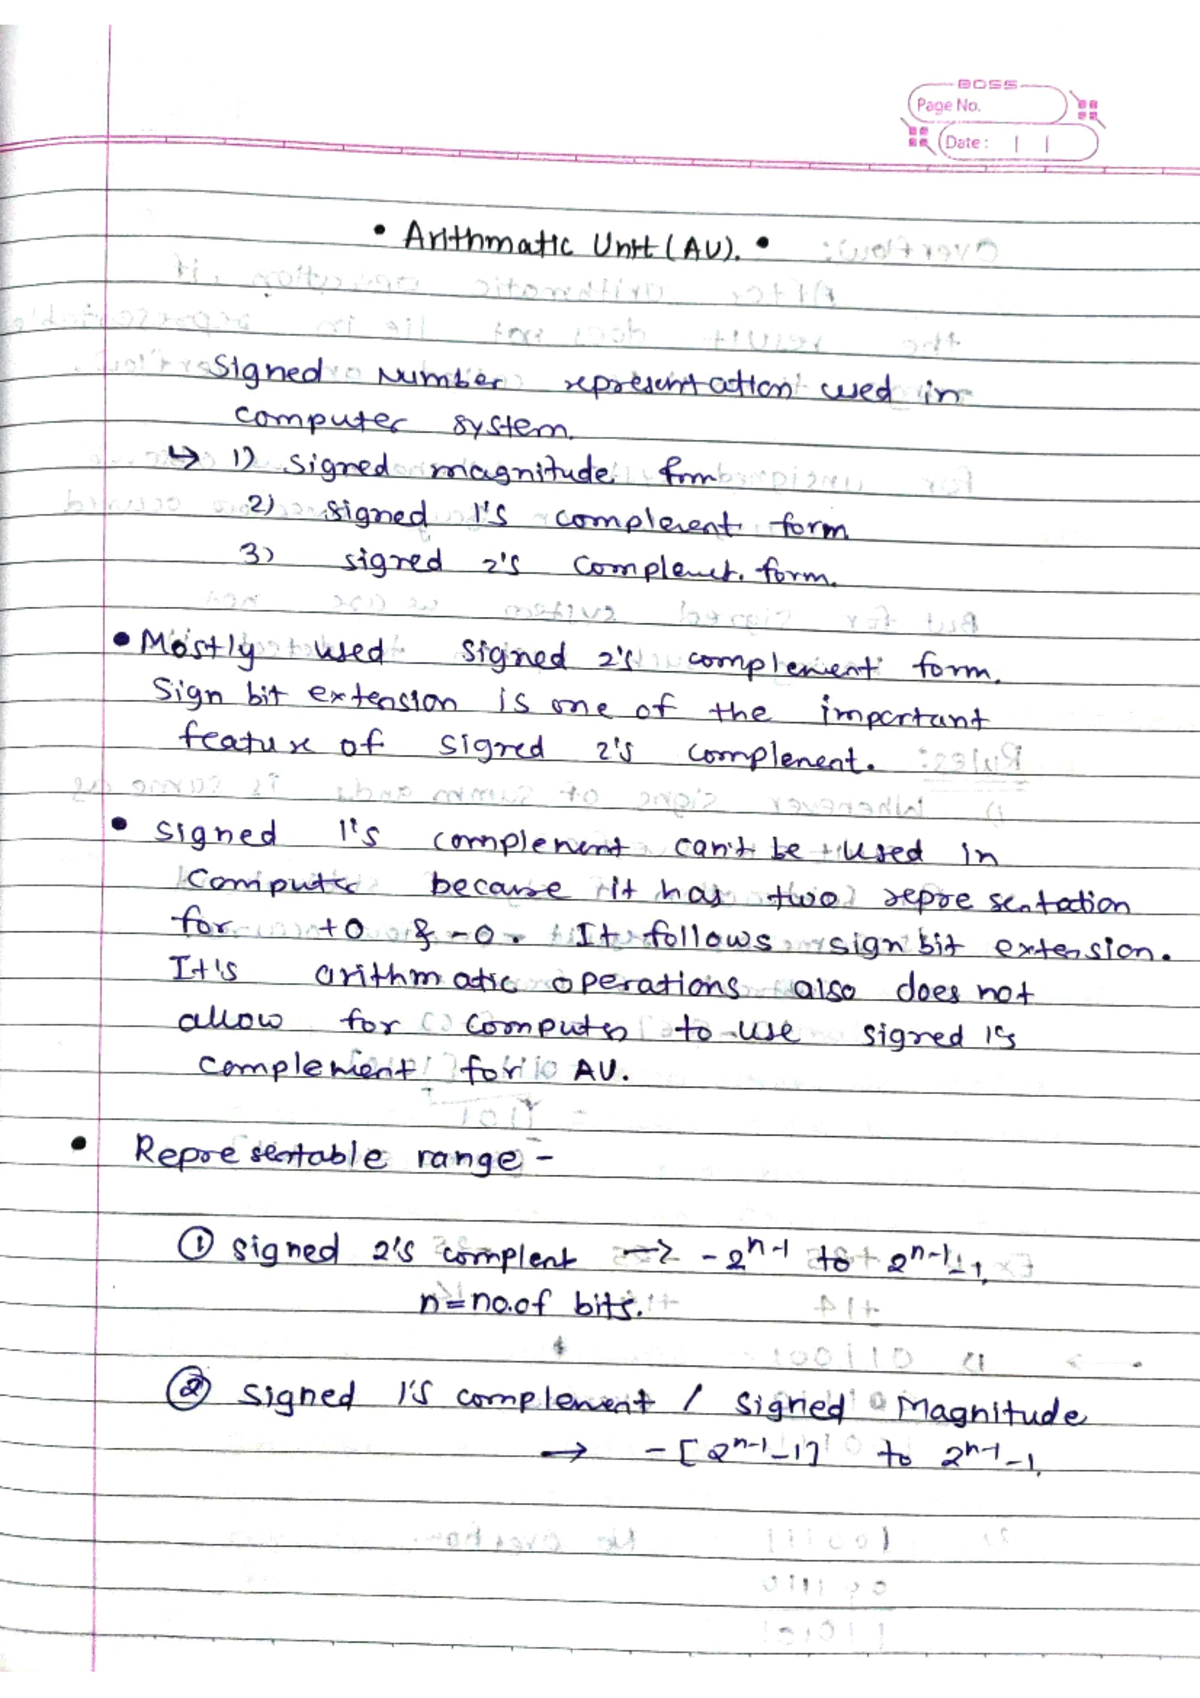 BOSS
Page No.
Date :
• Arithmatic Unit (AU). •
Signed Number representation used in
computer system.
↳ 1) signed magnitude form
2) signed 1's complement form
3) signed 2's complement form.
• Mostly used signed 2's complement form.
Sign bit extension is one of the important
feature of signed 2's complement.
• signed 1's complement can't be used in
computer because it has two representation
for +0 & -0. It follows sign bit extension.
It's arithmatic operations also does not
allow for computer to use signed 1's
complement for AU.
• Representable range -
① signed 2's complent → -2ⁿ⁻¹ to 2ⁿ⁻¹-1.
n = no.of bits.
② signed 1's complement / signed Magnitude
→ -[2ⁿ⁻¹-1] to 2ⁿ⁻¹-1.